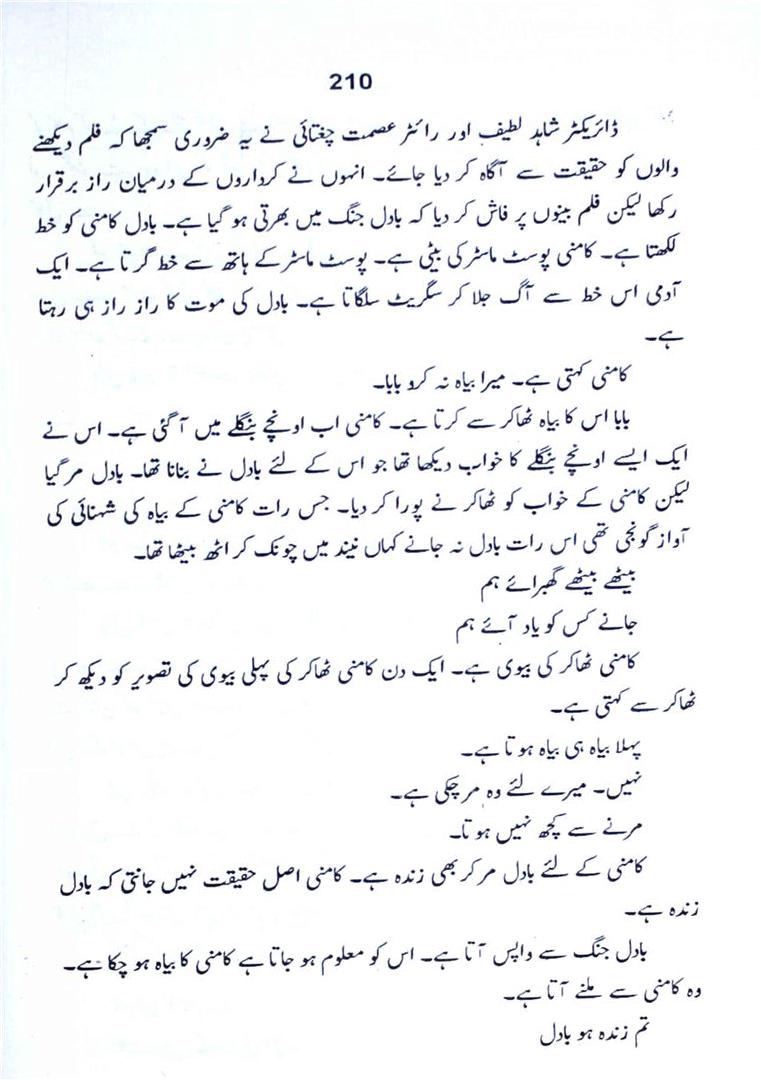 210
ڈائریکٹر شاہد لطیف اور رائٹر عصمت چغتائی نے یہ ضروری سمجھا کہ فلم دیکھنے
والوں کو حقیقت سے آگاہ کر دیا جائے۔ انہوں نے کرداروں کے درمیان راز برقرار
رکھا لیکن فلم بینوں پر فاش کر دیا کہ بادل جنگ میں بھرتی ہو گیا ہے۔ بادل کامنی کو خط
لکھتا ہے۔ کامنی پوسٹ ماسٹر کی بیٹی ہے۔ پوسٹ ماسٹر کے ہاتھ سے خط گرتا ہے۔ ایک
آدمی اس خط سے آگ جلا کر سگریٹ سلگاتا ہے۔ بادل کی موت کا راز راز ہی رہتا
ہے۔
کامنی کہتی ہے۔ میرا بیاہ نہ کرو بابا۔
بابا اس کا بیاہ ٹھاکر سے کرتا ہے۔ کامنی اب اونچے بنگلے میں آ گئی ہے۔ اس نے
ایک ایسے اونچے بنگلے کا خواب دیکھا تھا جو اس کے لئے بادل نے بنانا تھا۔ بادل مر گیا
لیکن کامنی کے خواب کو ٹھاکر نے پورا کر دیا۔ جس رات کامنی کے بیاہ کی شہنائی کی
آواز گونجی تھی اس رات بادل نہ جانے کہاں نیند میں چونک کر اٹھ بیٹھا تھا۔
بیٹھے بیٹھے گھبرائے ہم
جانے کس کو یاد آئے ہم
کامنی ٹھاکر کی بیوی ہے۔ ایک دن کامنی ٹھاکر کی پہلی بیوی کی تصویر کو دیکھ کر
ٹھاکر سے کہتی ہے۔
پہلا بیاہ ہی بیاہ ہوتا ہے۔
نہیں۔ میرے لئے وہ مر چکی ہے۔
مرنے سے کچھ نہیں ہوتا۔
کامنی کے لئے بادل مر کر بھی زندہ ہے۔ کامنی اصل حقیقت نہیں جانتی کہ بادل
زندہ ہے۔
بادل جنگ سے واپس آتا ہے۔ اس کو معلوم ہو جاتا ہے کامنی کا بیاہ ہو چکا ہے۔
وہ کامنی سے ملنے آتا ہے۔
تم زندہ ہو بادل